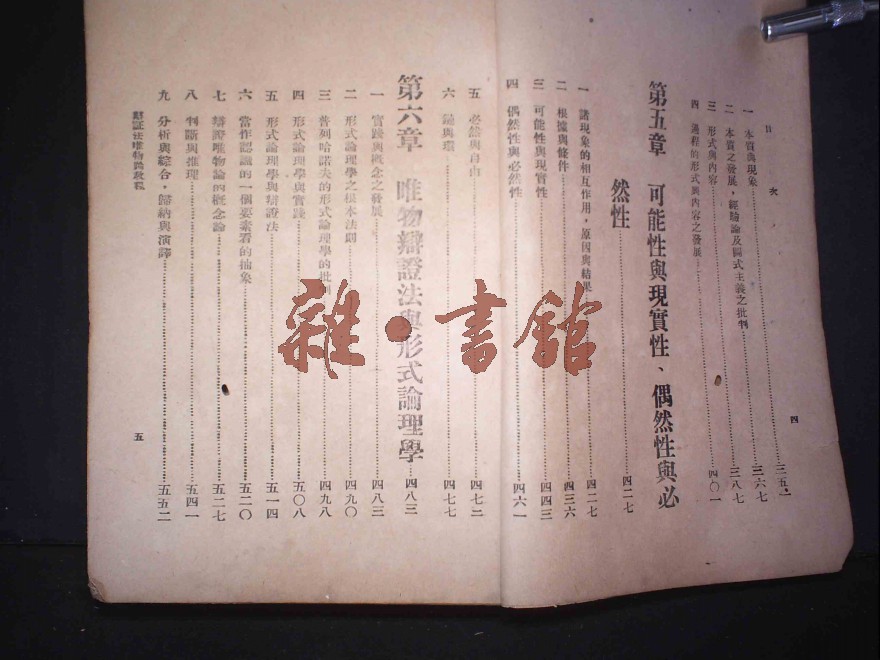 目次
一 本質與現象……三五一
二 本質之發展，經驗論及圖式主義之批判……三六七
三 形式與內容……三八七
四 過程的形式與內容之發展……四〇一
第五章 可能性與現實性、偶然性與必
然性……四二七
一 諸現象的相互作用，原因與結果……四二七
二 根據與條件……四三六
三 可能性與現實性……四四三
四 偶然性與必然性……四六一
四
五 必然與自由……四七二
六 鏈與環……四七七
第六章 唯物辯證法與形式論理學……四八三
一 實踐與概念之發展……四八三
二 形式論理學之根本法則……四九〇
三 普列哈諾夫的形式論理學的批判……四九八
四 形式論理學與實踐……五〇八
五 形式論理學與辯證法……五一四
六 當作認識的一個要素看的抽象……五二〇
七 辯證唯物論的概念論……五二七
八 判斷與推理……五四一
九 分析與綜合，歸納與演繹……五五二
辯証法唯物論教程
五
雜·書館